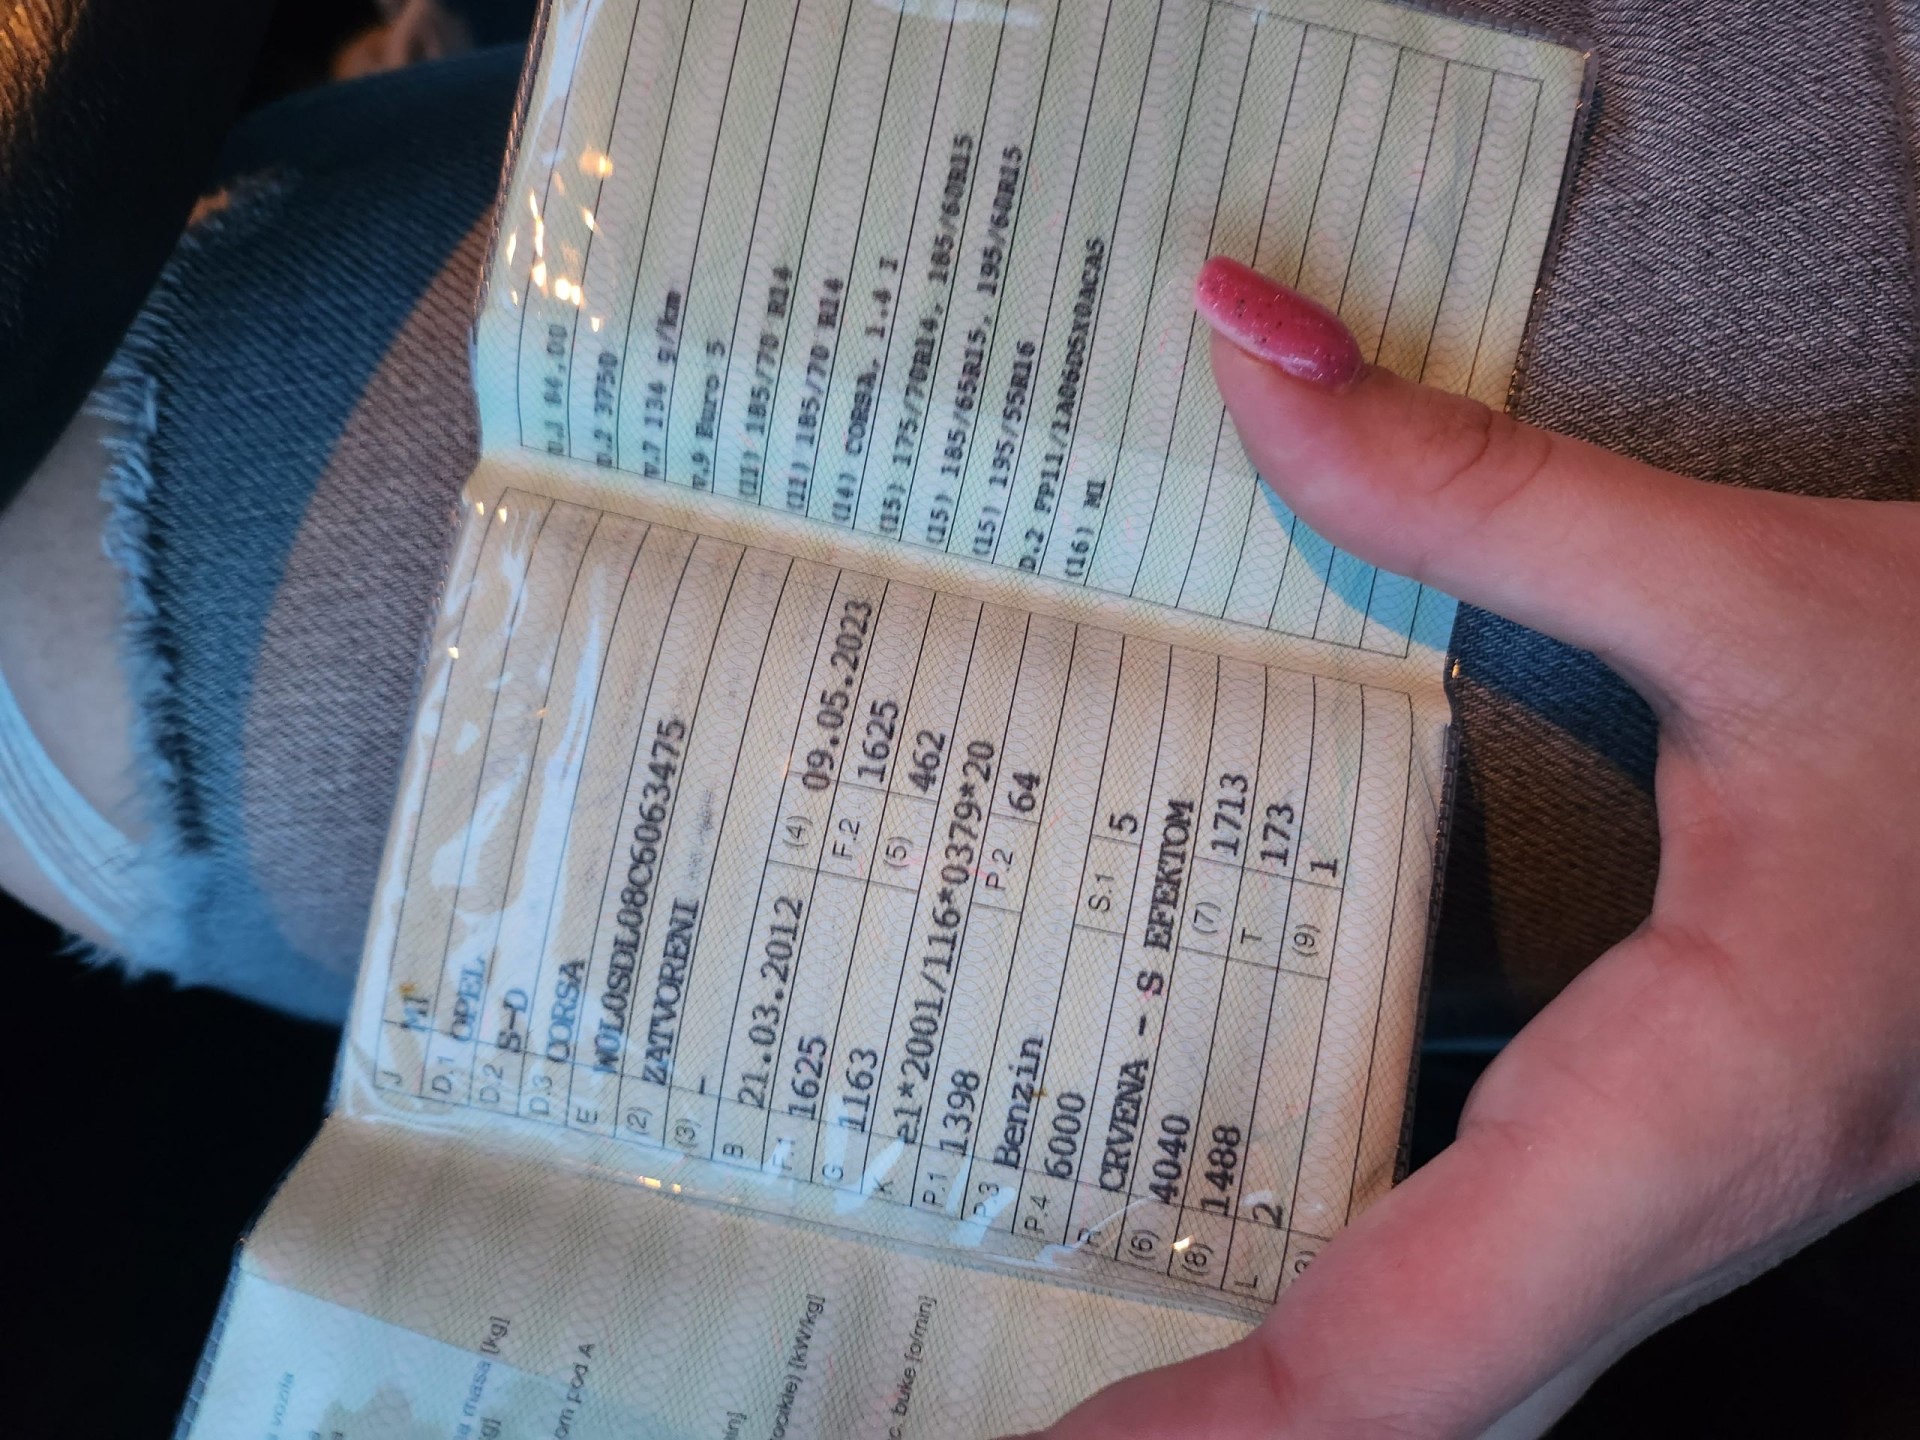 vozila
masa [kg]
om pod A
[kW/kg]
buke [o/min]
J M1
D.1 OPEL
D.2 S-D
D.3 CORSA
E W0L0SDL08C6063475
(2) ZATVORENI
(3) -
B 21.03.2012 (4) 09.05.2023
F.1 1625 F.2 1625
G 1163 (5) 462
K e1*2001/116*0379*20
P.1 1398 P.2 64
P.3 Benzin
P.4 6000 S.1 5
R CRVENA - S EFEKTOM
(6) 4040 (7) 1713
(8) 1488 T 173
L 2 (9) 1
U.1 84,00
U.2 3750
V.7 134 g/km
V.9 Euro 5
(11) 185/70 R14
(11) 185/70 R14
(14) CORSA, 1.4 I
(15) 175/70R14, 185/60R15
(15) 185/65R15, 195/60R15
(15) 195/55R16
D.2 FP11/1A06D5X0ACA5
(16) M1